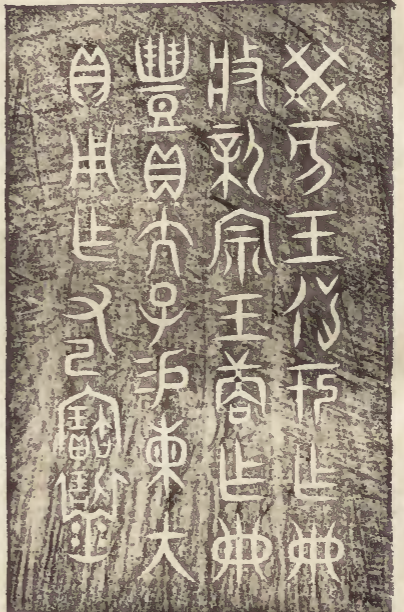 癸亥王乍冊
般新宗王商乍冊
豐貝大子易東大
貝用乍父己寶